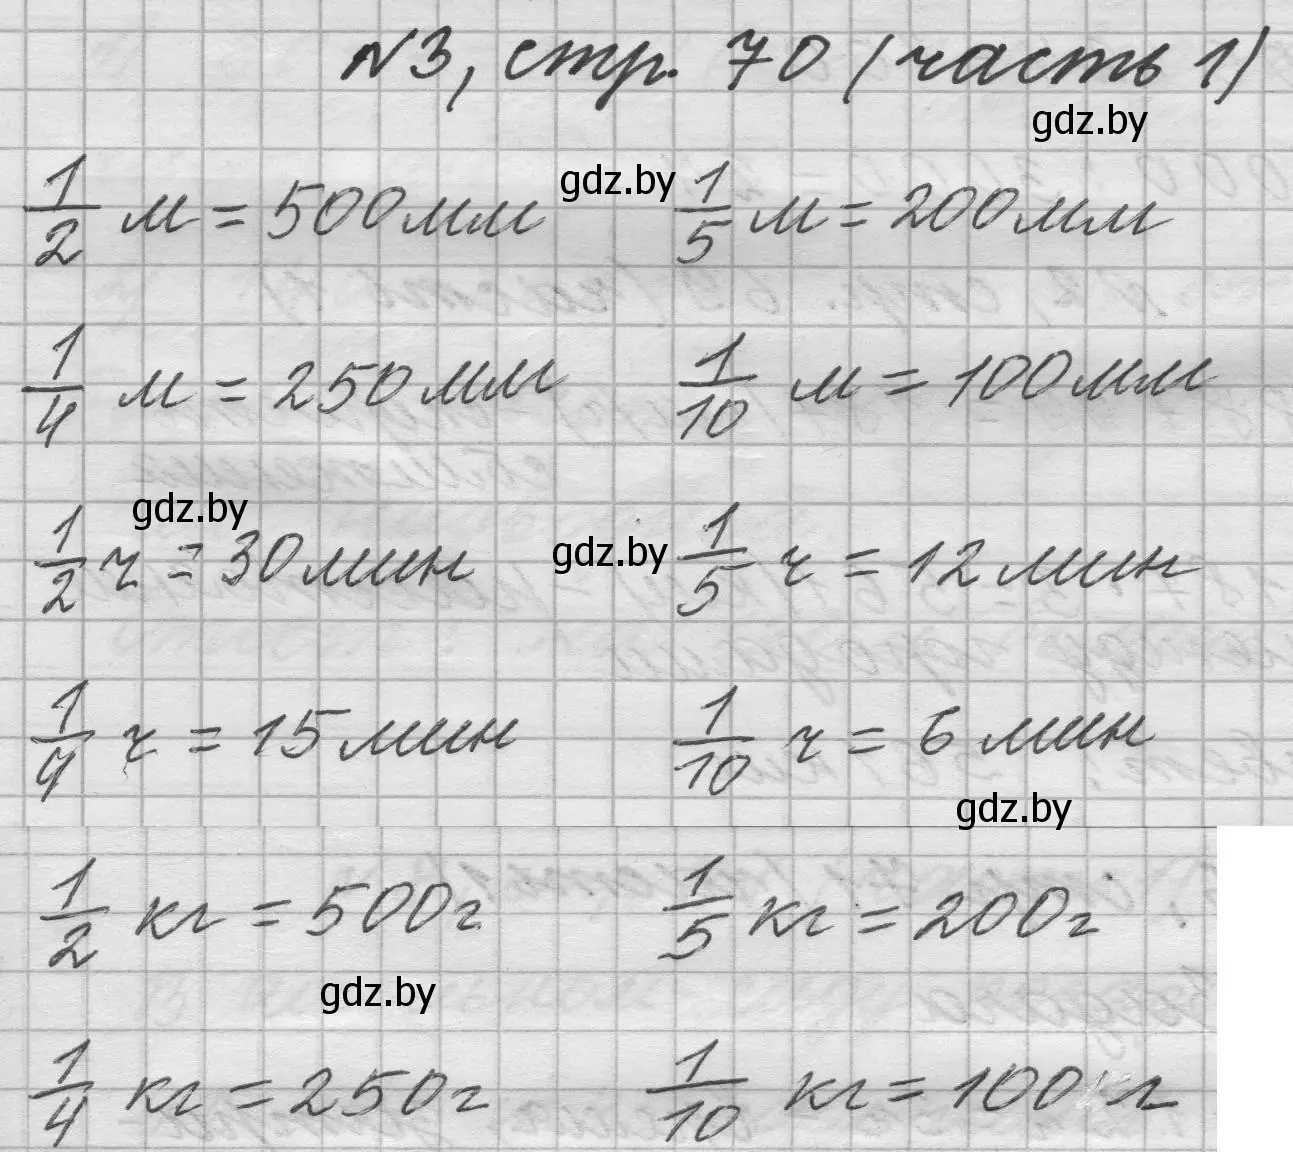 №3, стр. 70 (часть 1)
gdz.by
1/2 м = 500 мм gdz.by 1/5 м = 200 мм
1/4 м = 250 мм 1/10 м = 100 мм
gdz.by
1/2 ч = 30 мин gdz.by 1/5 ч = 12 мин
1/4 ч = 15 мин 1/10 ч = 6 мин
gdz.by
1/2 кг = 500 г 1/5 кг = 200 г
gdz.by
1/4 кг = 250 г 1/10 кг = 100 г